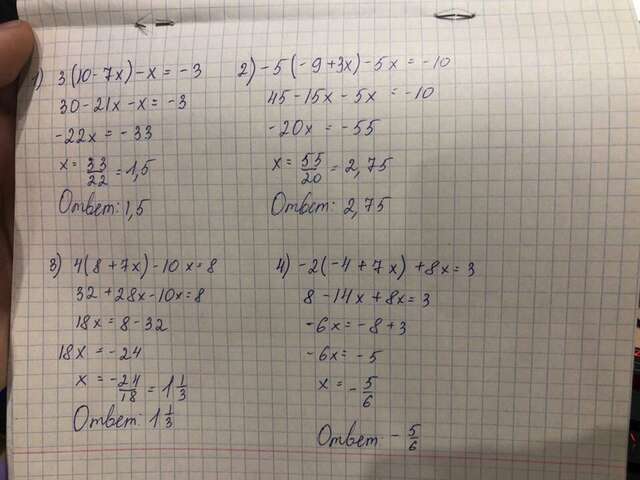 1) 3(10-7x)-x = -3
30-21x-x = -3
-22x = -33
x = 33/22 = 1,5
Ответ: 1,5
2) -5(-9+3x)-5x = -10
45-15x-5x = -10
-20x = -55
x = 55/20 = 2,75
Ответ: 2,75
3) 4(8+7x)-10x=8
32+28x-10x=8
18x = 8-32
18x = -24
x = -24/18 = 1 1/3
Ответ: 1 1/3
4) -2(-4+7x)+8x=3
8-14x+8x=3
-6x = -8+3
-6x = -5
x = -5/6
Ответ -5/6